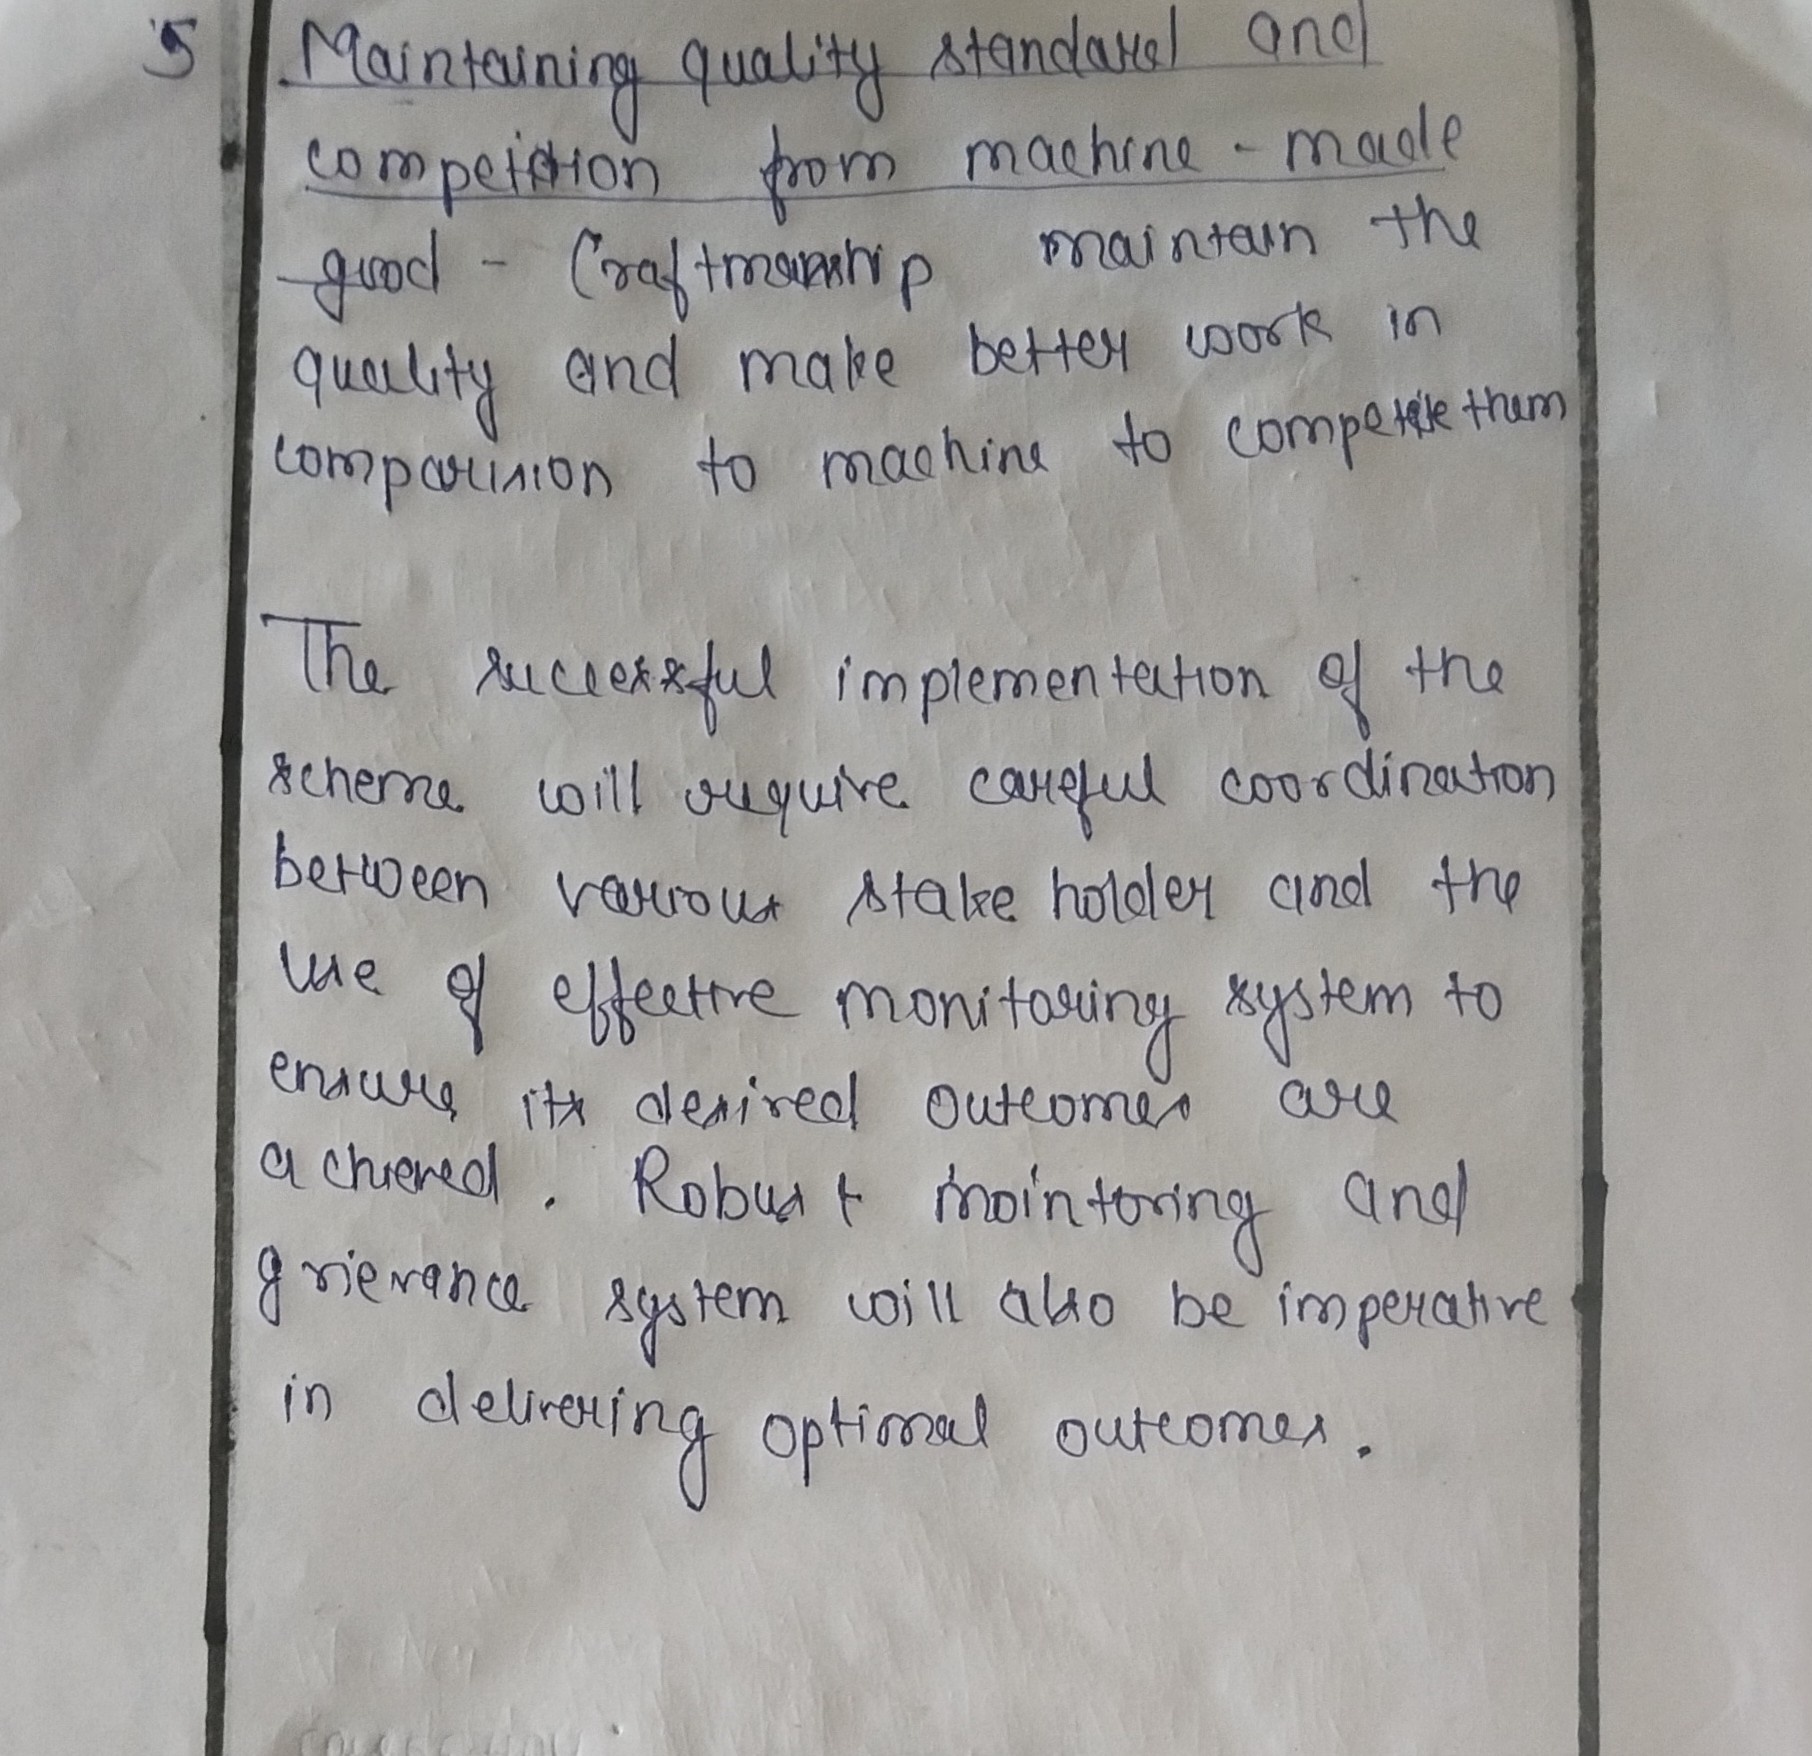 5 Maintaining quality standard and
competition from machine - made
good - Craftmanship maintain the
quality and make better work in
comparision to machine to compete them
The successful implementation of the
scheme will require careful coordination
between various stake holder and the
use of effective monitoring system to
ensure its desired outcomes are
achieved. Robust mointoring and
grievance system will also be imperative
in delivering optimal outcomes.